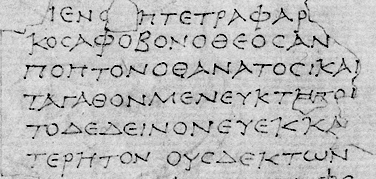 ΜΕΝΟ Η ΤΕΤΡΑΦΑΡ
ΚΟϹΑΦΟΒΟΝΟΘΕΟϹΑΝ
ΠΟΠΤΟΝΟΘΑΝΑΤΟϹΙΚΑΙ
ΤΑΓΑΘΟΝΜΕΝΕΥΚΤΗΤΟ
ΤΟΔΕΔΕΙΝΟΝΕΥΕΚΚΑ
ΤΕΡΗΤΟΝ ΟΥϹΔΕΚΤΩΝ